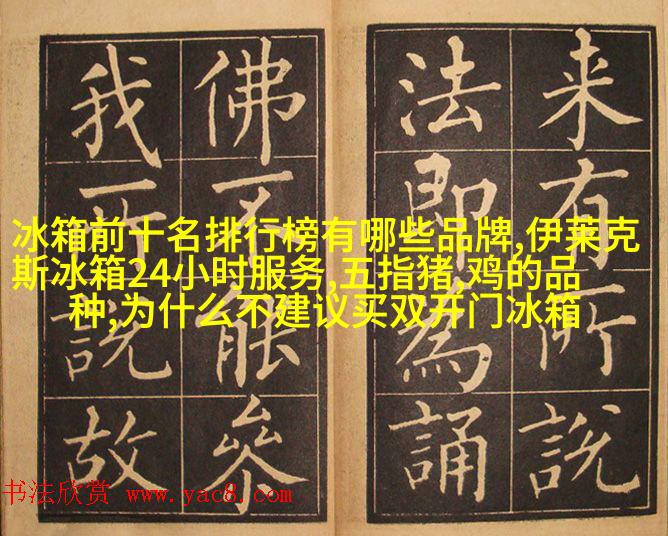 来有所說
法即為誦
佛不能叅
我所說故
冰箱前十名排行榜有哪些品牌,伊莱克
斯冰箱24小时服务,五指猪,鸡的品
种,为什么不建议买双开门冰箱
书法欣赏 www.yac8.com